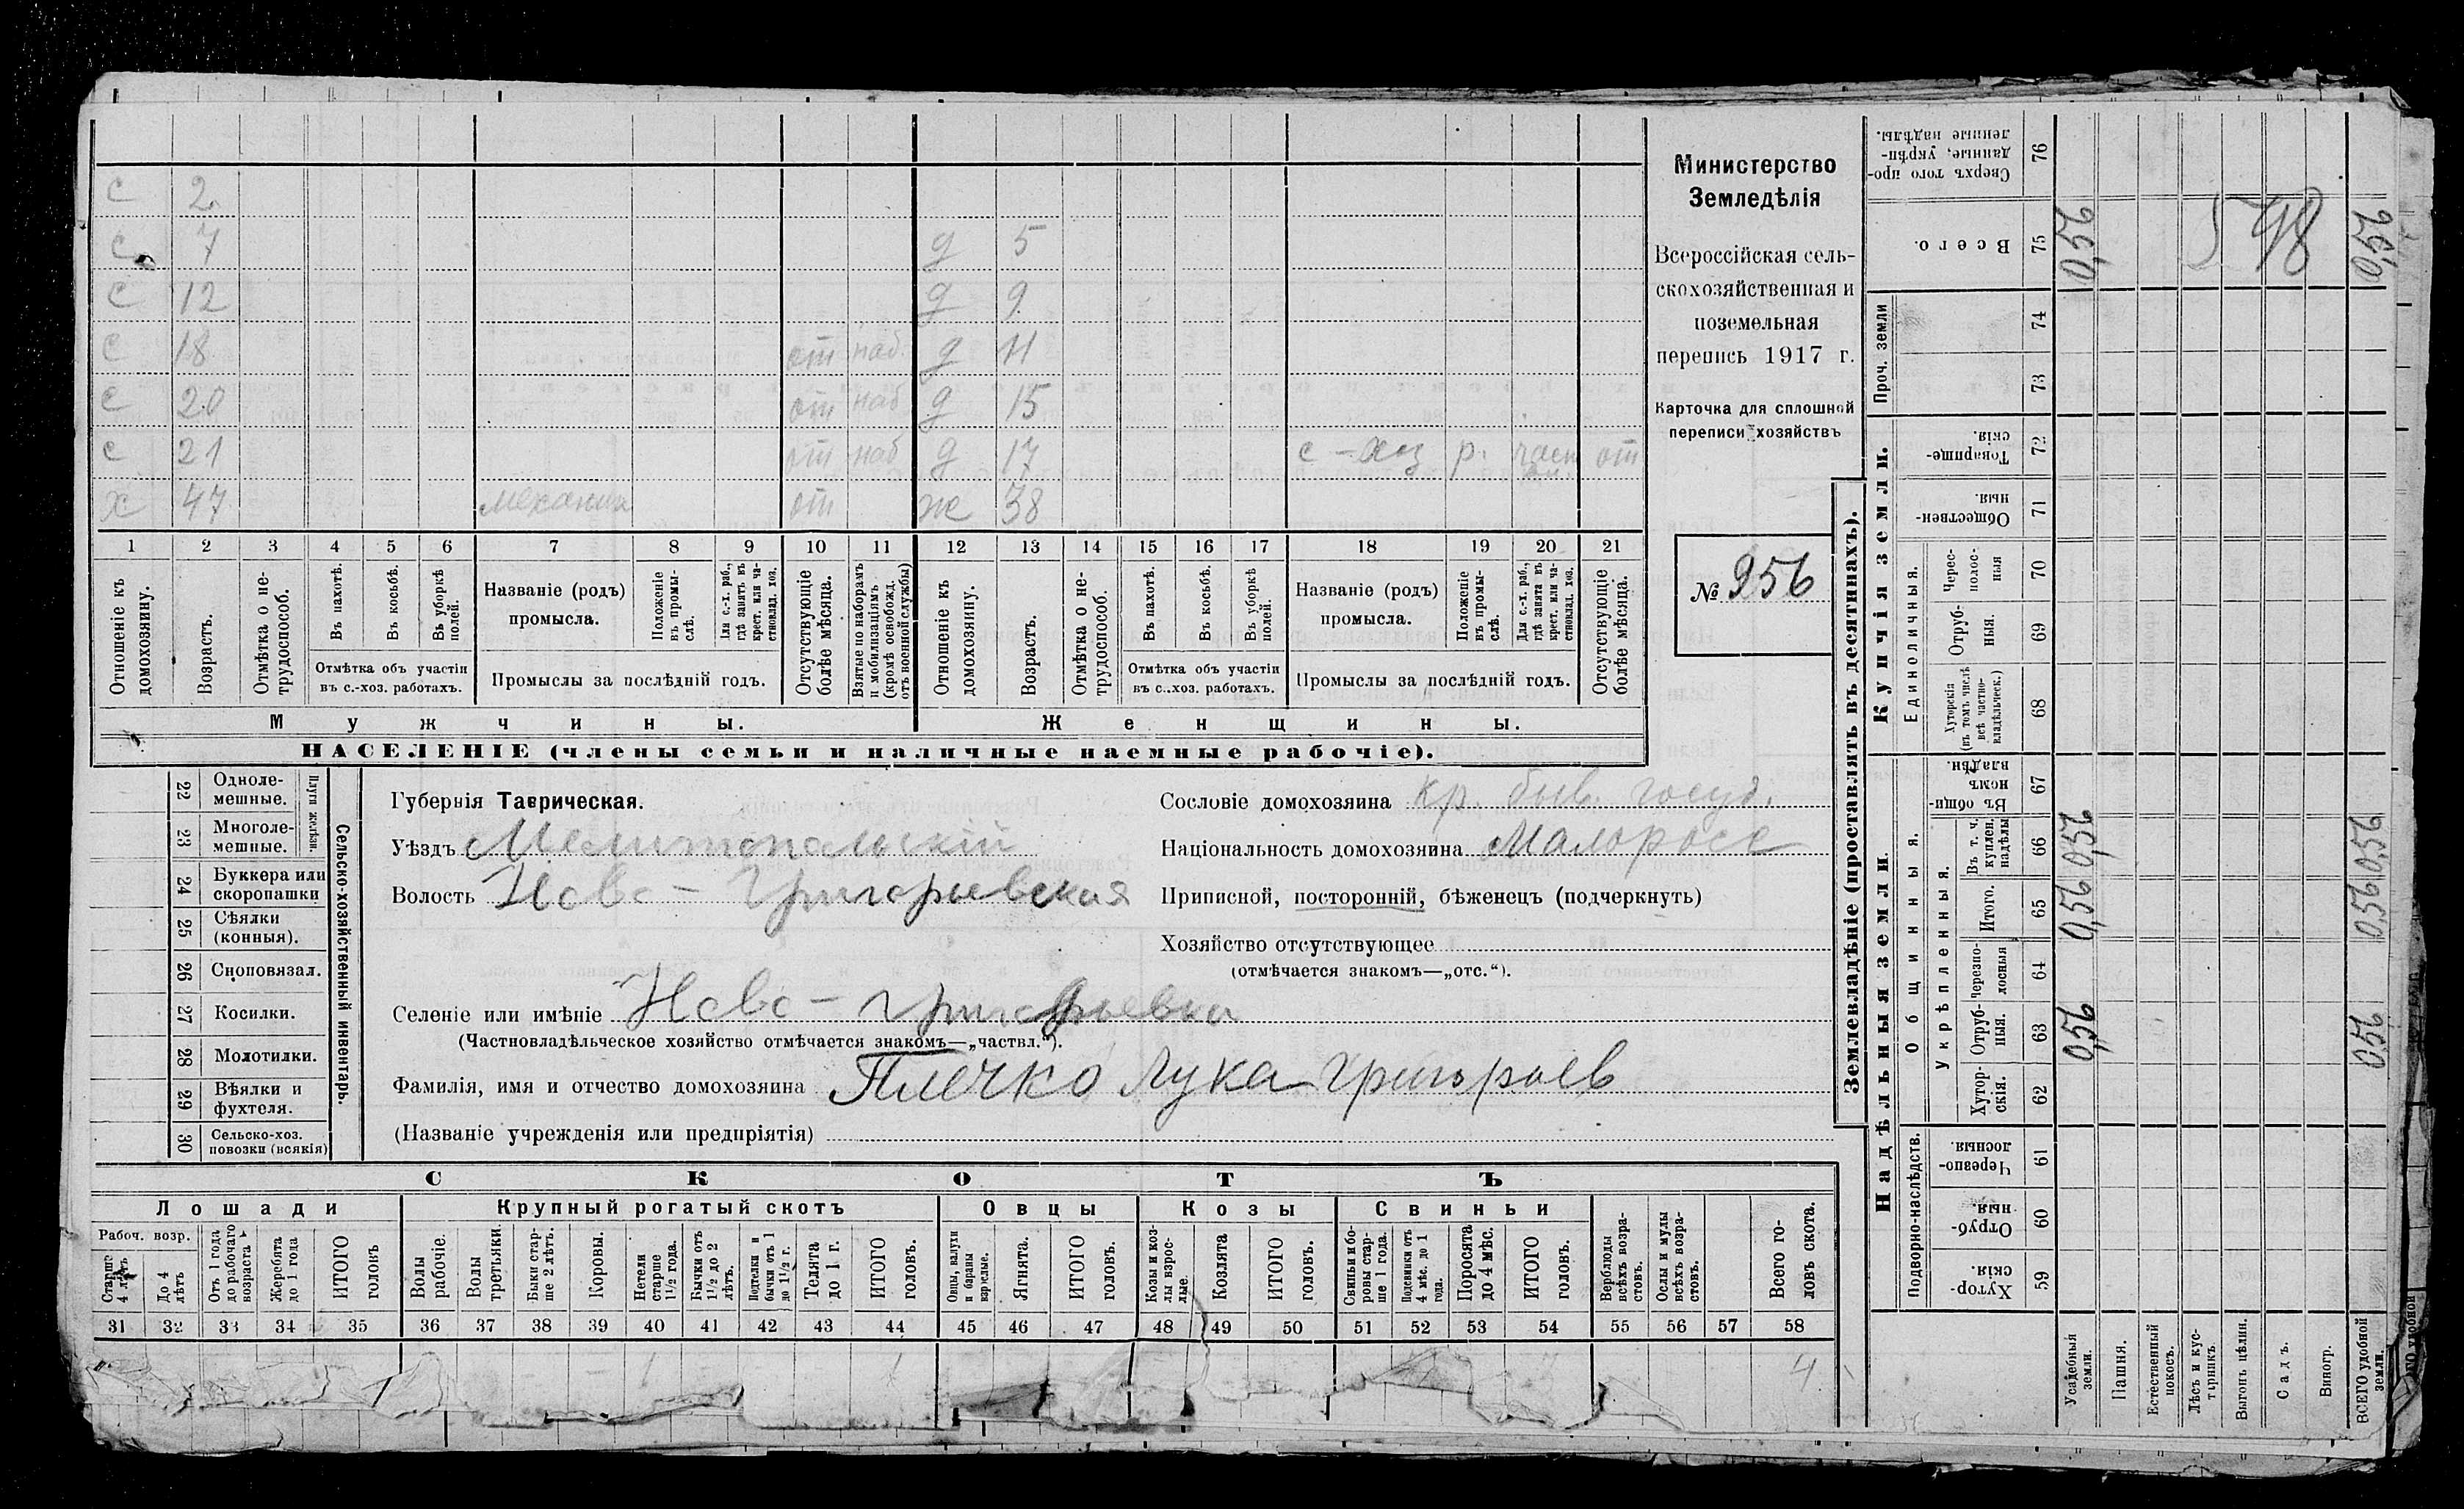 с 2
с 7 д 5
с 12 д 9
с 18 от наб. д 11
с 20 от наб д 15
с 21 от наб д 17 с-хоз р. част от
х 47 механик от ж 38
1 2 3 4 5 6 7 8 9 10 11 12 13 14 15 16 17 18 19 20 21
Отношеніе къ домохозяину.
Возрастъ.
Отмѣтка о не-трудоспособ.
Въ пахотѣ.
Въ косьбѣ.
Въ уборкѣ полей.
Отмѣтка объ участіи
въ с.-хоз. работахъ.
Названіе (родъ)
промысла.
Положеніе въ промы-слѣ.
Для с.-х. раб., гдѣ занятъ въ крест. или ча-стновлад. хоз.
Промыслы за послѣдній годъ.
Отсутствующіе болѣе мѣсяца.
Взятые по наборамъ и мобилизаціямъ (кромѣ освобожд. отъ военной службы)
Отношеніе къ домохозяину.
Возрастъ.
Отмѣтка о не-трудоспособ.
Въ пахотѣ.
Въ косьбѣ.
Въ уборкѣ полей.
Отмѣтка объ участіи
въ с.-хоз. работахъ.
Названіе (родъ)
промысла.
Положеніе въ промы-слѣ.
Для с.-х. раб., гдѣ занята въ крест. или ча-стновлад. хоз.
Промыслы за послѣдній годъ.
Отсутствующіе болѣе мѣсяца.
Мужчины.
Женщины.
НАСЕЛЕНІЕ (члены семьи и наличные наемные рабочіе).
Министерство
Земледѣлія
Всероссійская сель-
скохозяйственная и
поземельная
перепись 1917 г.
Карточка для сплошной
переписи хозяйствъ
№ 956
Сельско-хозяйственный инвентарь.
Плуги желѣзн.
22 Одноле-
мешные.
23 Многоле-
мешные.
24 Буккера или
скоропашки
25 Сѣялки
(конныя).
26 Сноповязал.
27 Косилки.
28 Молотилки.
29 Вѣялки и
фухтеля.
30 Сельско-хоз.
повозки (всякія)
Губернія Таврическая.
Уѣздъ Мелитопольскій
Волость Ново-Григорьевская
Селеніе или имѣніе Ново-Григорьевка
(Частновладѣльческое хозяйство отмѣчается знакомъ—„частвл.“).
Фамилія, имя и отчество домохозяина Плечко Лука Григорьев
(Названіе учрежденія или предпріятія)
Сословіе домохозяина кр. быв. госуд.
Національность домохозяина Малоросс
Приписной, посторонній, бѣженецъ (подчеркнуть)
Хозяйство отсутствующее
(отмѣчается знакомъ—„отс.“).
СКОТЪ
Лошади
Крупный рогатый скотъ
Овцы
Козы
Свиньи
Рабоч. возр.
Старше 4 лѣтъ
До 4 лѣтъ
Отъ 1 года до рабочаго возраста
Жеребята до 1 года
ИТОГО головъ
Волы рабочіе.
Волы третьяки.
Быки стар-ше 2 лѣтъ.
Коровы.
Нетели старше 1½ года.
Бычки отъ 1½ до 2 лѣтъ.
Подтелки и бычки отъ 1 до 1½ г.
Телята до 1 г.
ИТОГО головъ.
Овцы, валухи и бараны взрослые.
Ягнята.
ИТОГО головъ.
Козы и коз-лы взрос-лые.
Козлята
ИТОГО головъ.
Свиньи и бо-ровы стар-ше 1 года.
Подсвинки отъ 4 мѣс. до 1 года.
Поросята до 4 мѣс.
ИТОГО головъ.
Верблюды всѣхъ возра-стовъ.
Ослы и мулы всѣхъ возра-стовъ.
Всего го-ловъ скота.
31 32 33 34 35 36 37 38 39 40 41 42 43 44 45 46 47 48 49 50 51 52 53 54 55 56 57 58
4
Землевладѣніе (проставлять въ десятинахъ).
Надѣльныя земли.
Купчія земли.
Проч. земли
Подворно-наслѣдств.
Общинныя.
Укрѣпленныя.
Единоличныя.
59 Хутор-скія.
60 Отруб-ныя.
61 Черезпо-лосныя
62 Хутор-скія.
63 Отруб-ныя.
64 Черезпо-лосныя
65 Итого.
66 Въ т. ч. куплен. надѣлы
67 Въ общи-номъ владѣн.
68 Хуторскія (въ томъ числѣ всѣ частно-владѣльческ.)
69 Отруб-ныя.
70 Черес-полос-ныя
71 Обществен-ныя.
72 Товарище-скія.
73
74
75 Всего.
76 Сверхъ того про-данные, укрѣп-ленные надѣлы.
Усадебныя земли. 0,56 0,56 0,56 0,56
Пашня.
Естественный покосъ.
Лѣсъ и кус-тарникъ.
Выгонъ цѣлин.
Садъ.
Виногр.
ВСЕГО удобной земли. 0,56 0,56 0,56 0,56